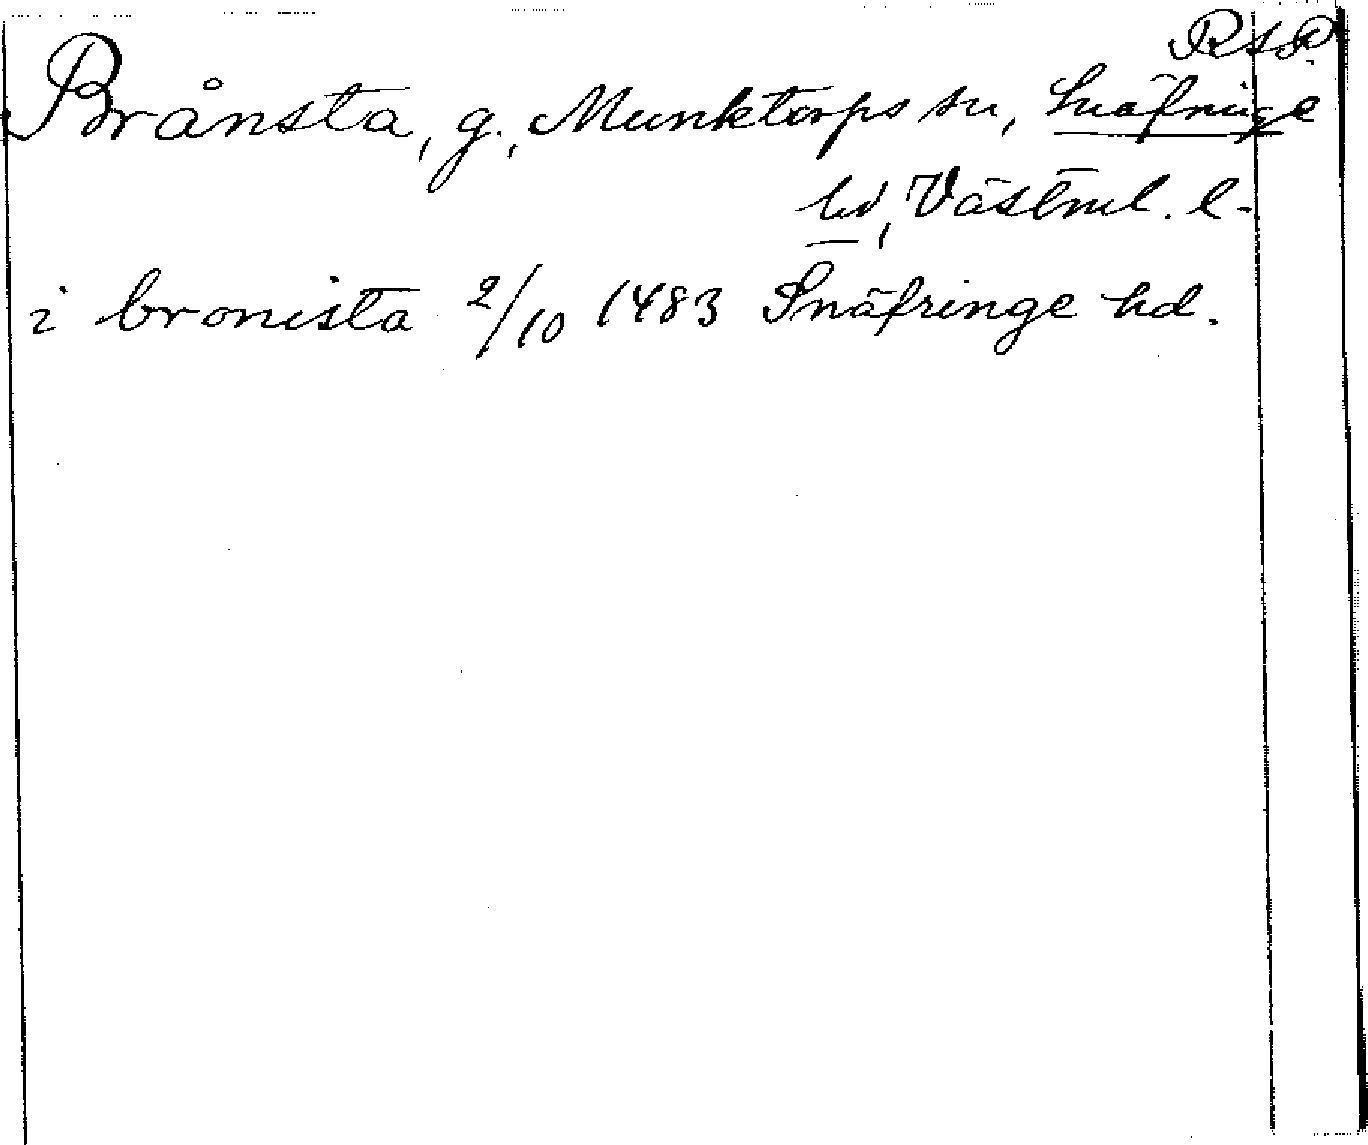 RAP
Brånsta, g., Munktorps sn, Snäfringe
hd, Västml. l.
i bronista 2/10 1483 Snäfringe hd.